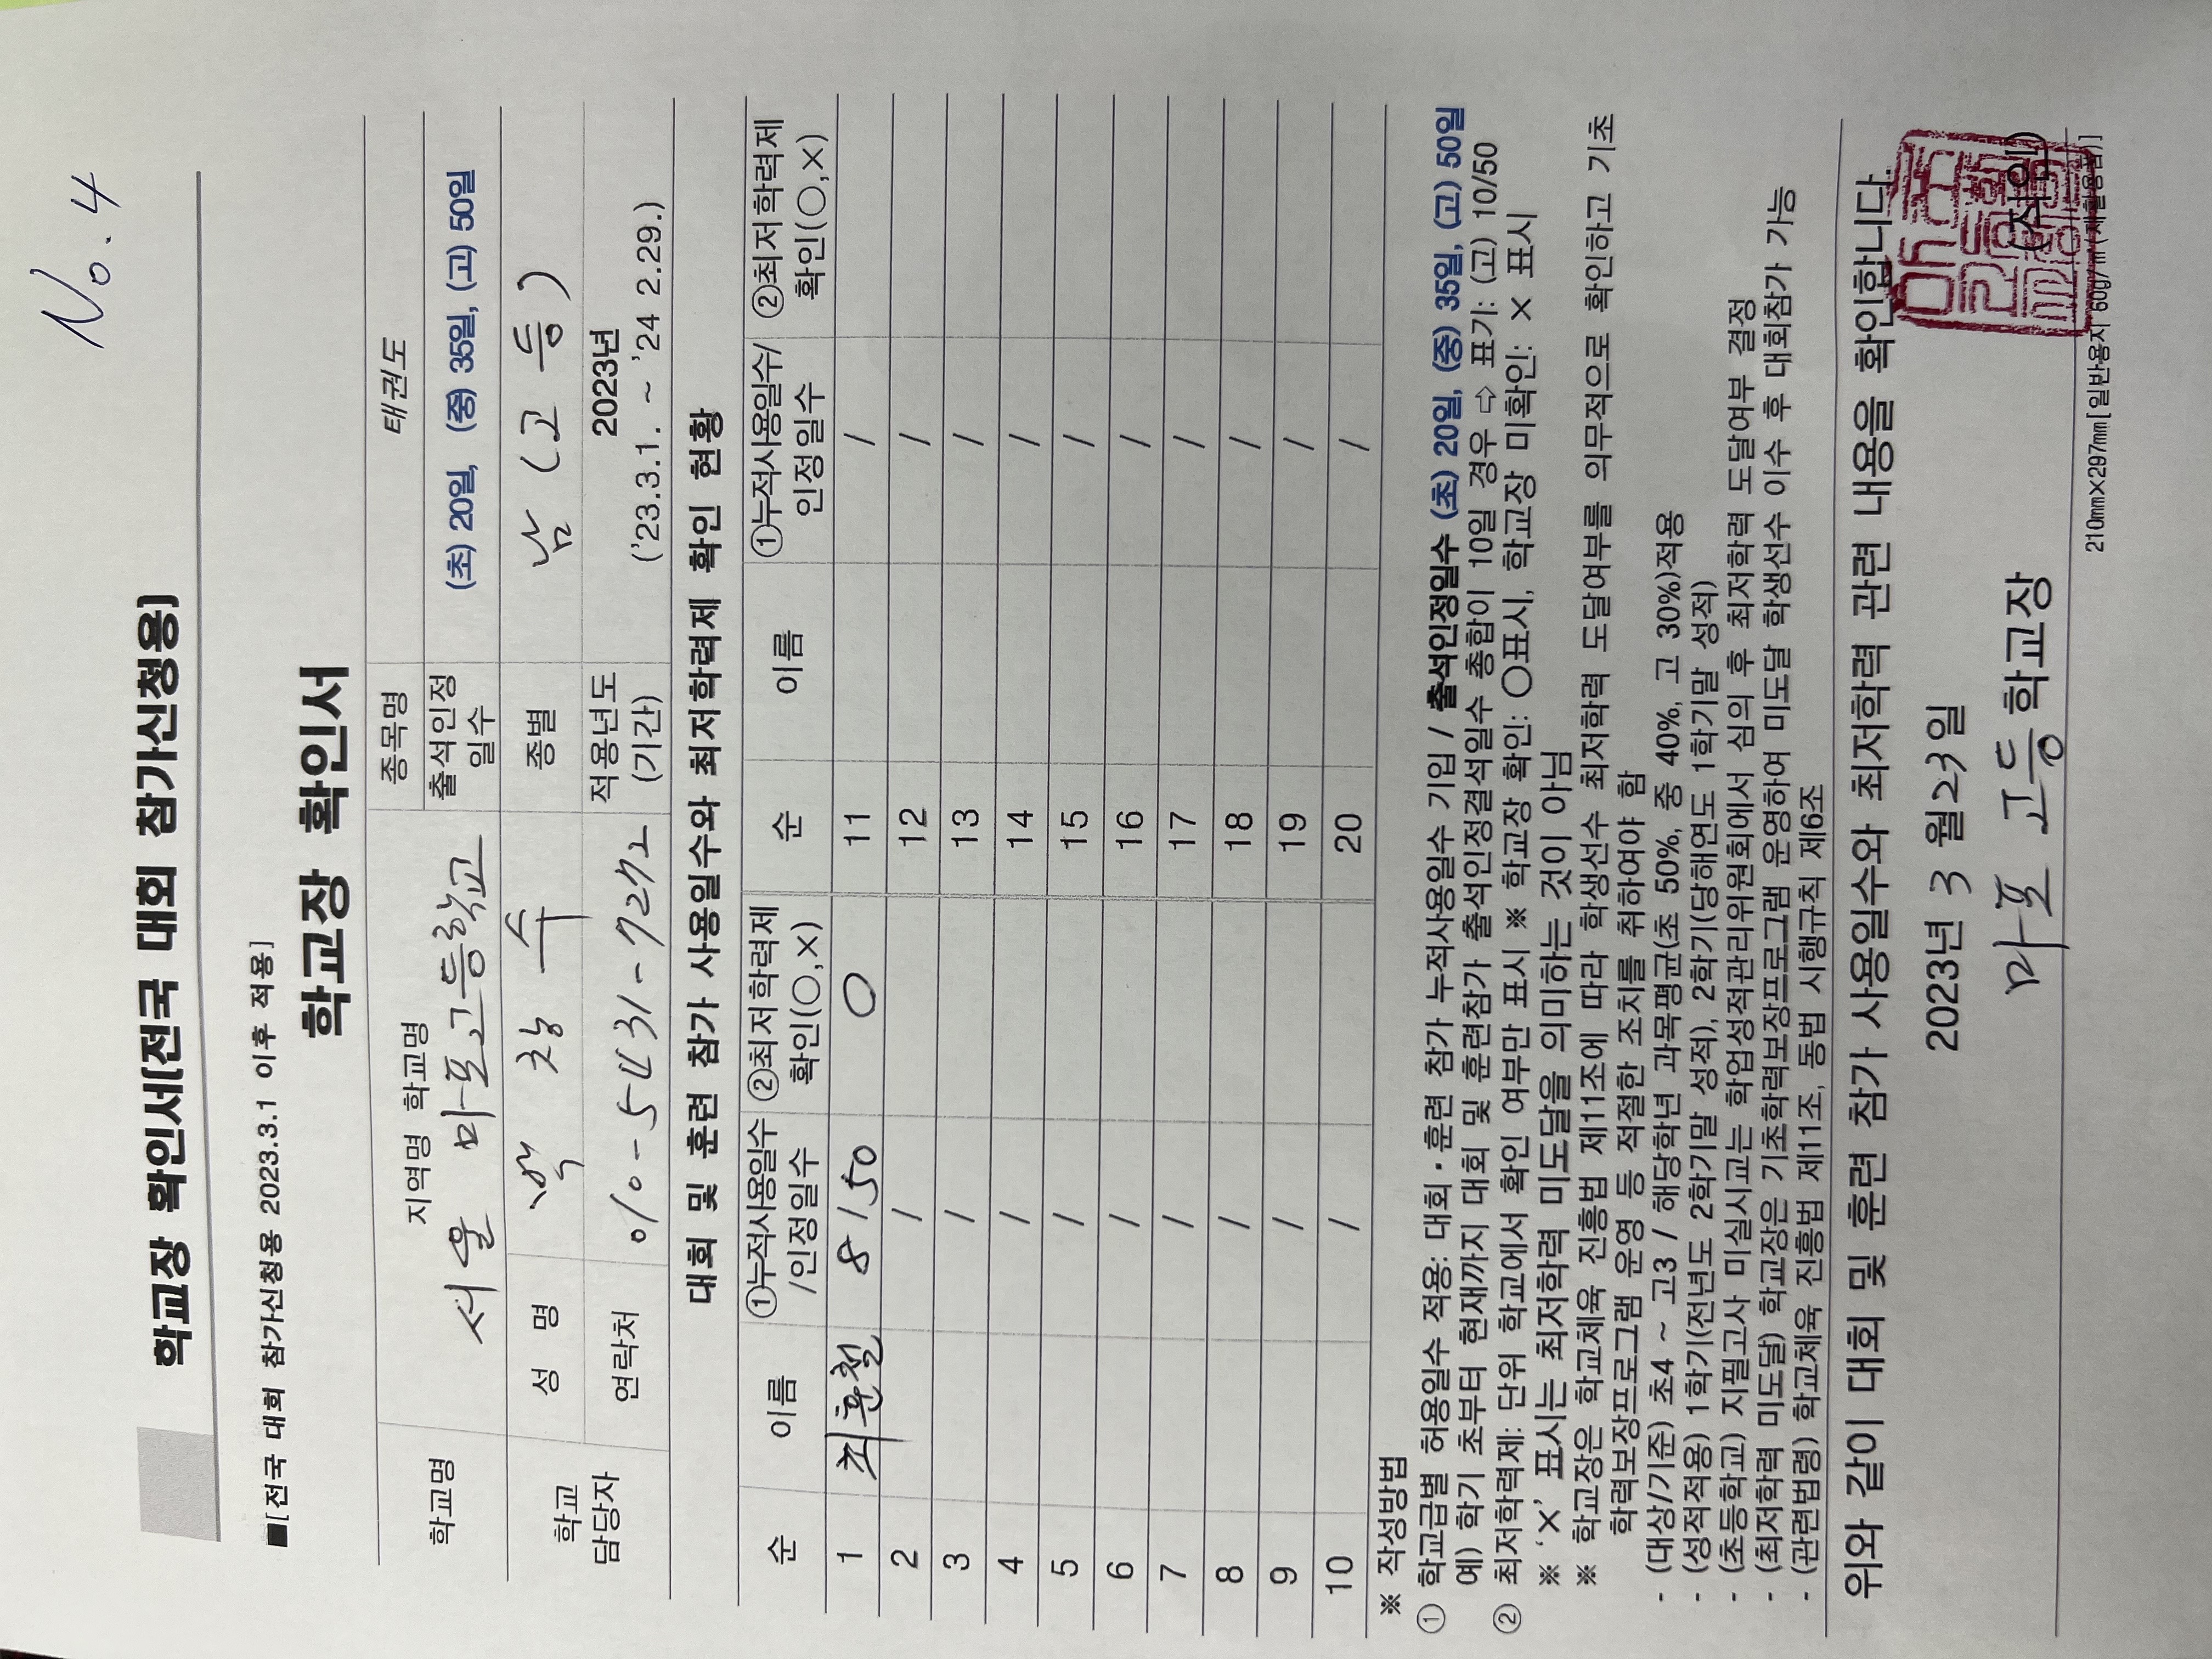 No. 4
학교장 확인서[전국 대회 참가신청용]
■[전국 대회 참가신청용 2023.3.1 이후 적용]
학교장 확인서
학교명 지역명 학교명 종목명 태권도
서울 마포고등학교 출석인정일수 (초) 20일, (중) 35일, (고) 50일
학교 담당자 성 명 창수 종별 남 (고 등)
연락처 적용년도 (기간) 2023년
('23.3.1. ~ '24 2.29.)
대회 및 훈련 참가 사용일수와 최저학력제 확인 현황
순 이름 ①누적사용일수/인정일수 ②최저학력제 확인(○,×) 순 이름 ①누적사용일수/인정일수 ②최저학력제 확인(○,×)
1 최훈철 8/50 ○ 11 /
2 / 12 /
3 / 13 /
4 / 14 /
5 / 15 /
6 / 16 /
7 / 17 /
8 / 18 /
9 / 19 /
10 / 20 /
※ 작성방법
① 학교급별 허용일수 적용: 대회·훈련 참가 누적사용일수 기입 / 출석인정일수 (초) 20일, (중) 35일, (고) 50일
예) 학기 초부터 현재까지 대회 및 훈련참가 출석인정결석일수 총합이 10일 경우 ⇨ 표기: (고) 10/50
② 최저학력제: 단위 학교에서 확인 여부만 표시 ※ 학교장 확인: ○표시, 학교장 미확인: × 표시
※ '×' 표시는 최저학력 미도달을 의미하는 것이 아님
※ 학교장은 학교체육 진흥법 제11조에 따라 학생선수 최저학력 도달여부를 의무적으로 확인하고 기초
학력보장프로그램 운영 등 적절한 조치를 취하여야 함
- (대상/기준) 초4 ~ 고3 / 해당학년 과목평균(초 50%, 중 40%, 고 30%)적용
- (성적적용) 1학기(전년도 2학기말 성적), 2학기(당해연도 1학기말 성적)
- (초등학교) 지필고사 미실시교는 학업성적관리위원회에서 심의 후 최저학력 도달여부 결정
- (최저학력 미도달) 학교장은 기초학력보장프로그램 운영하여 미도달 학생선수 이수 후 대회참가 가능
- (관련법령) 학교체육 진흥법 제11조, 동법 시행규칙 제6조
위와 같이 대회 및 훈련 참가 사용일수와 최저학력 관련 내용을 확인합니다.
2023년 3 월 23일
마포 고등 학교장 (직인)
210㎜×297㎜[일반용지 60g/㎡(재활용품)]